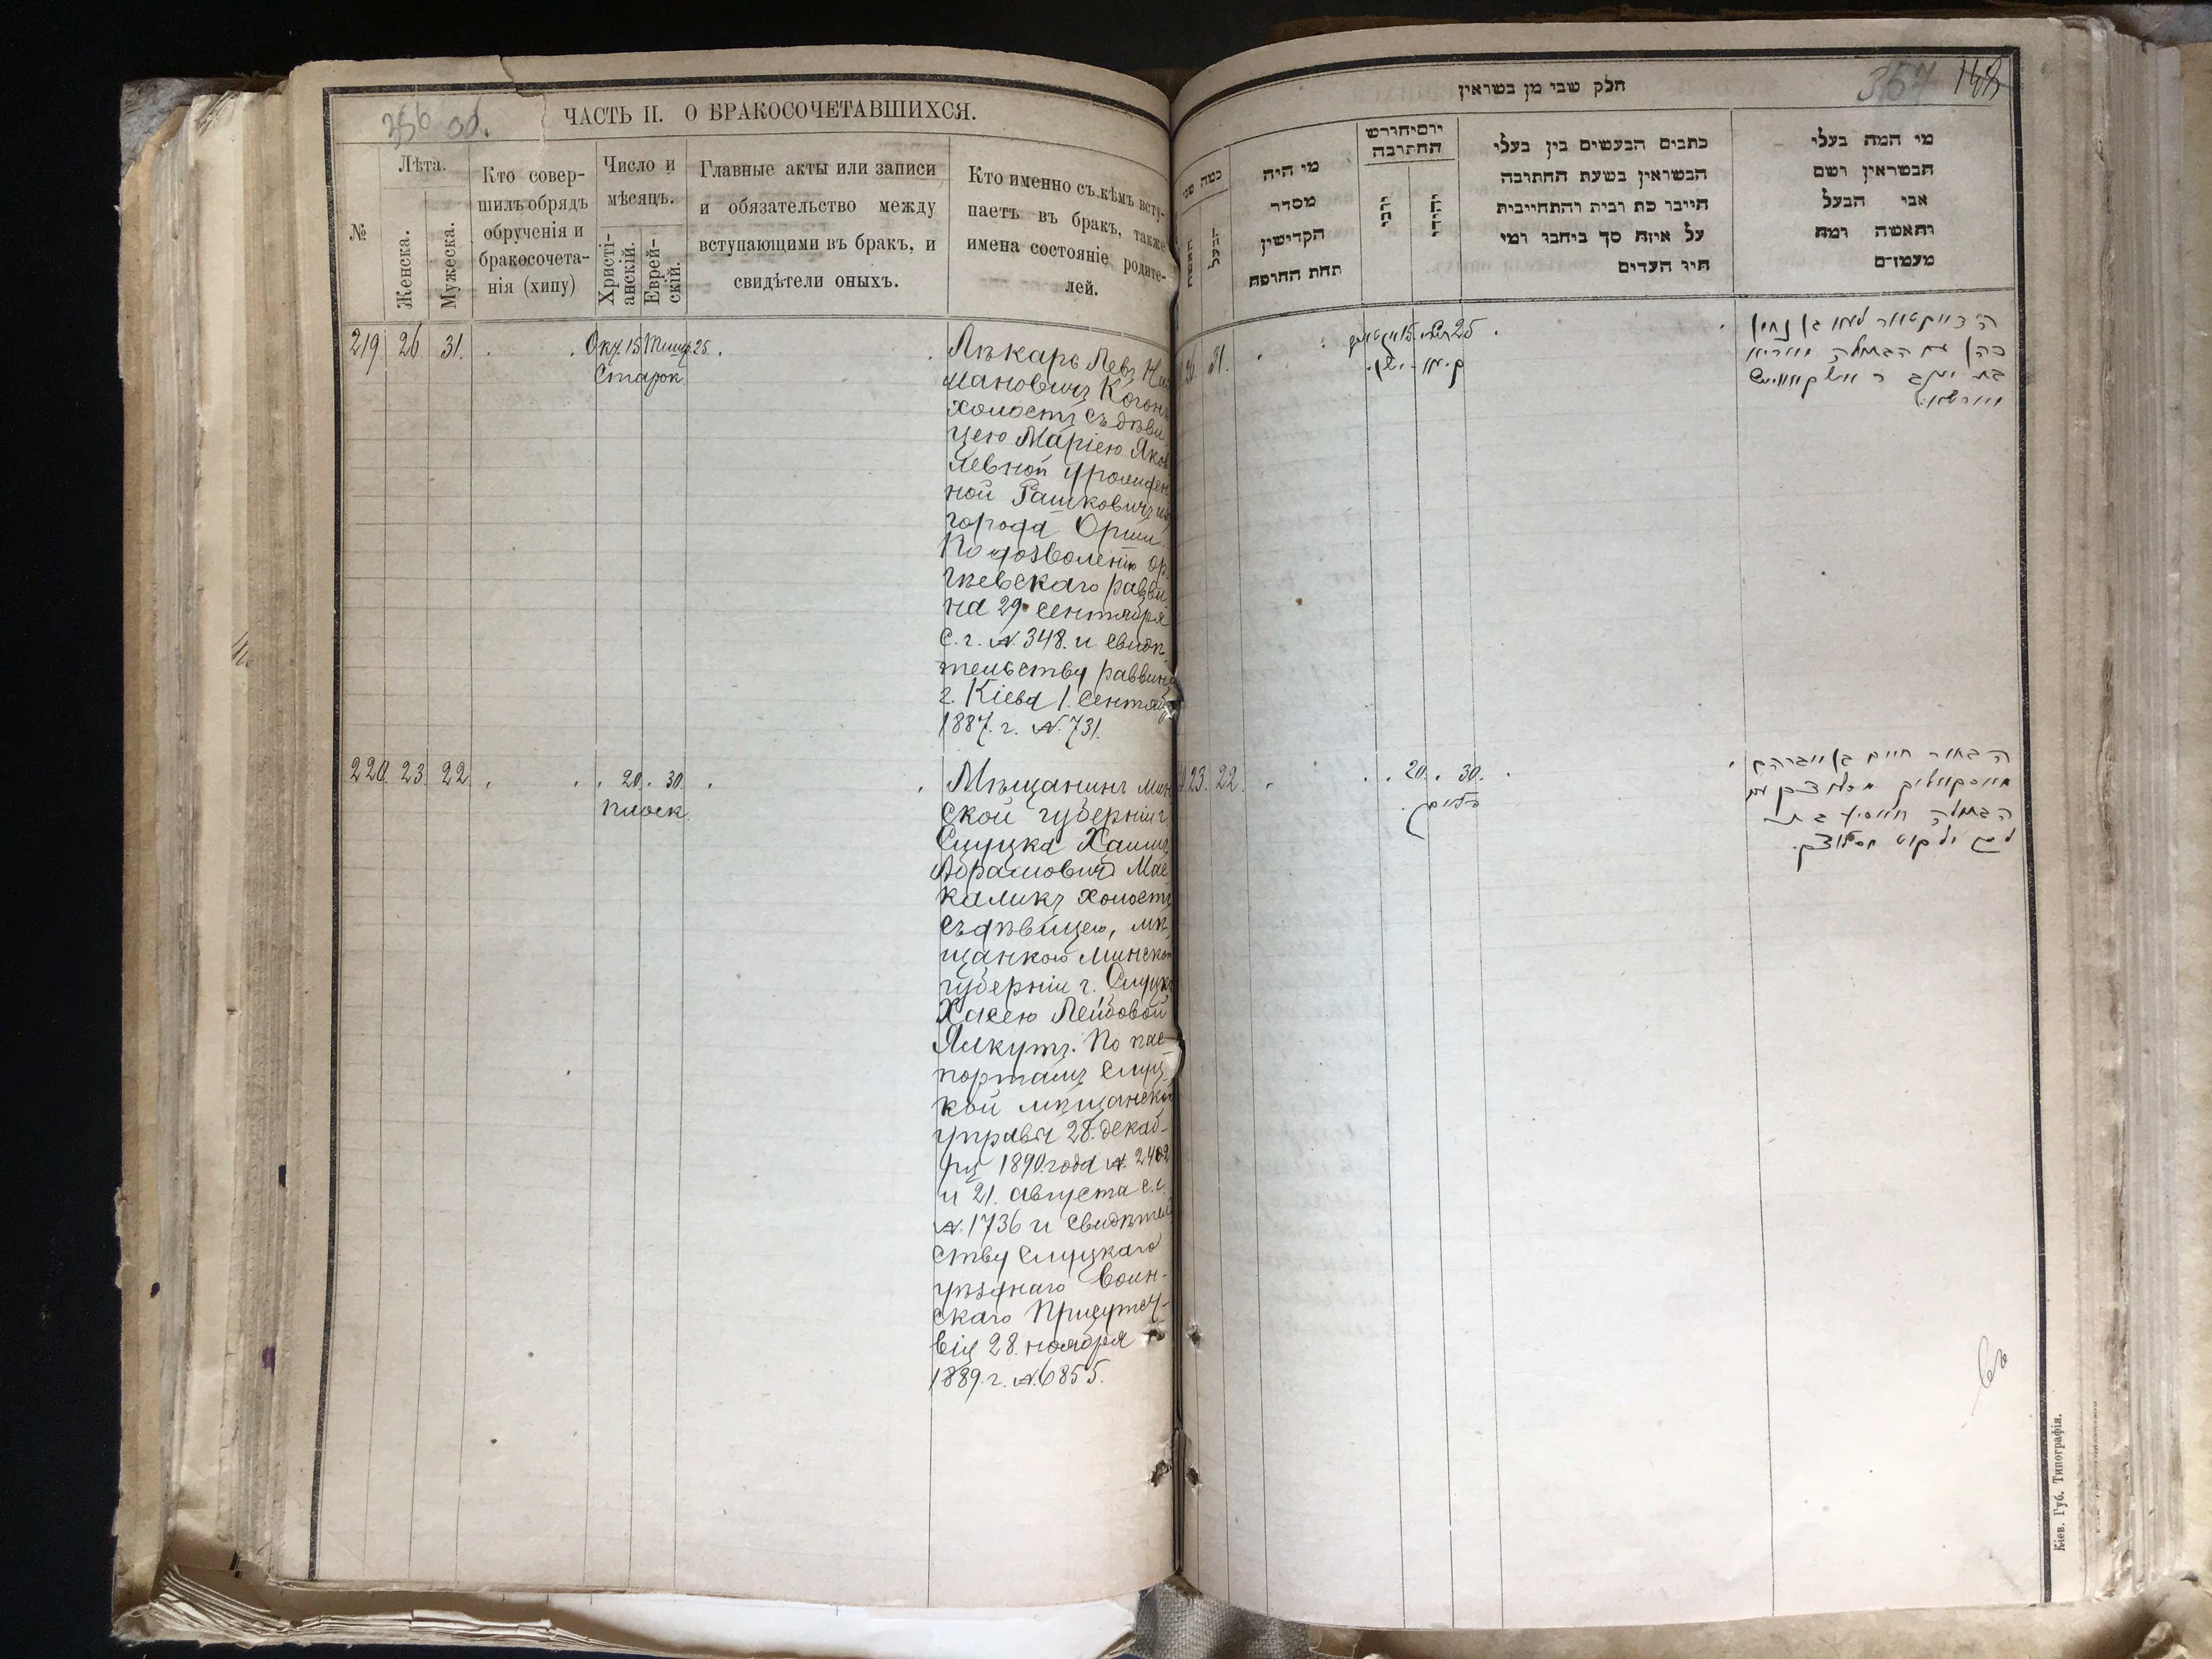 356 об.
ЧАСТЬ II. О БРАКОСОЧЕТАВШИХСЯ.
№
Лѣта.
Женска.
Мужеска.
Кто совер-
шилъ обрядъ
обрученія и
бракосочета-
нія (хипу)
Число и
мѣсяцъ.
Христі-
анскій.
Еврей-
скій.
Главные акты или записи
и обязательство между
вступающими въ бракъ, и
свидѣтели оныхъ.
Кто именно съ кѣмъ всту-
паетъ въ бракъ, также
имена состояніе родите-
лей.
219 26 31. Окт. 15 Тишр. 25.
Старок.
Лѣкарь Левъ
мановичъ Коганъ
холостъ съ дѣви-
цею Маріею Яков
левной урожден
ной Рашковичъ изъ
города Орши.
По дозволенію
раввина
на 29 сентября
с. г. №. 348. и свидѣ
тельству раввина
г. Кіева 1. Сентяб
1887. г. №. 731.
220. 23 22 20. 30.
плоск.
Мѣщанинъ мин
ской губерніи г.
Слуцка Хаимъ
Абрамовичъ Мас
каликъ холостъ
съ дѣвицею, мѣ
щанкою минской
губерніи г. Слуцка
Хасею Лейбовой
Ялкутъ. По пас
портамъ Слуц
кой мѣщанской
управы 28. декаб-
ря 1890 года №. 2402
и 21. августа с.г.
№. 1736 и свидѣтель
ству Слуцкаго
уѣзднаго Воин-
скаго Присутст-
вія 28. ноября
1889. г. №. 6855.
חלק שבי מן בשראין
357 148
כמה שני
האשה
הבעל
מי היה
מסדר
הקדישין
תחת החופה
יוס־חורש
החתובה
כתבים הבעשים בין בעלי
הבשראין בשעת החתובה
חייבו כת רבית והתחייבית
על איזת סך ביחבו ומי
חיו העדים
מי המה בעלי
הבשראין ושם
אבי הבעל
והאשה ומה
מעמדם
26. 31. 15 25
23. 22. 20. 30.
הבחור חיים בן אברהם
מאסקאליק מסלוצק עם
הבתולה חאסיע בת
לייב ילקוט מסלוצק.
Кіев. Губ. Типографія.